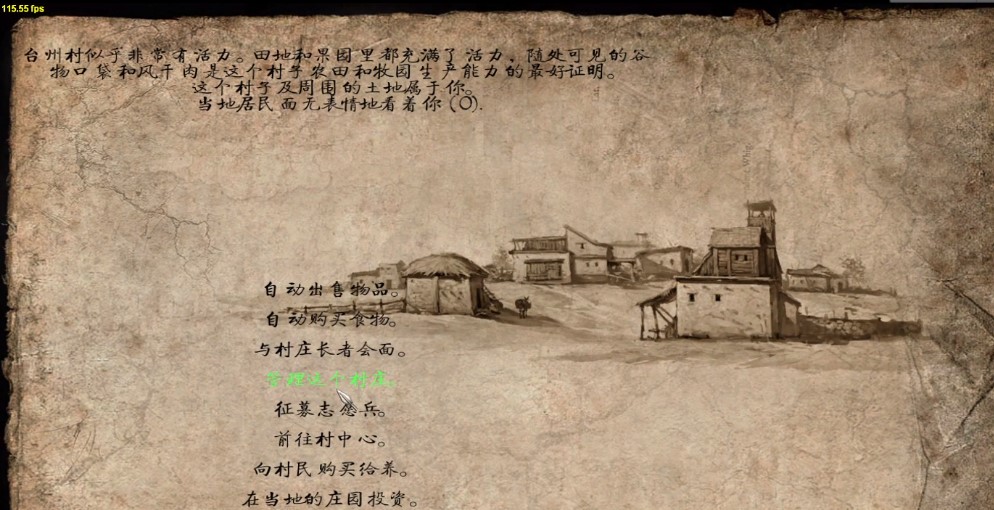 115.55 fps
台州村似乎非常有活力。田地和果园里都充满了活力，随处可见的谷
物口袋和风干肉是这个村子农田和牧园生产能力的最好证明。
这个村子及周围的土地属于你。
当地居民面无表情地看着你(0).
自动出售物品。
自动购买食物。
与村庄长者会面。
管理这个村庄。
征募志愿兵。
前往村中心。
向村民购买给养。
在当地的庄园投资。